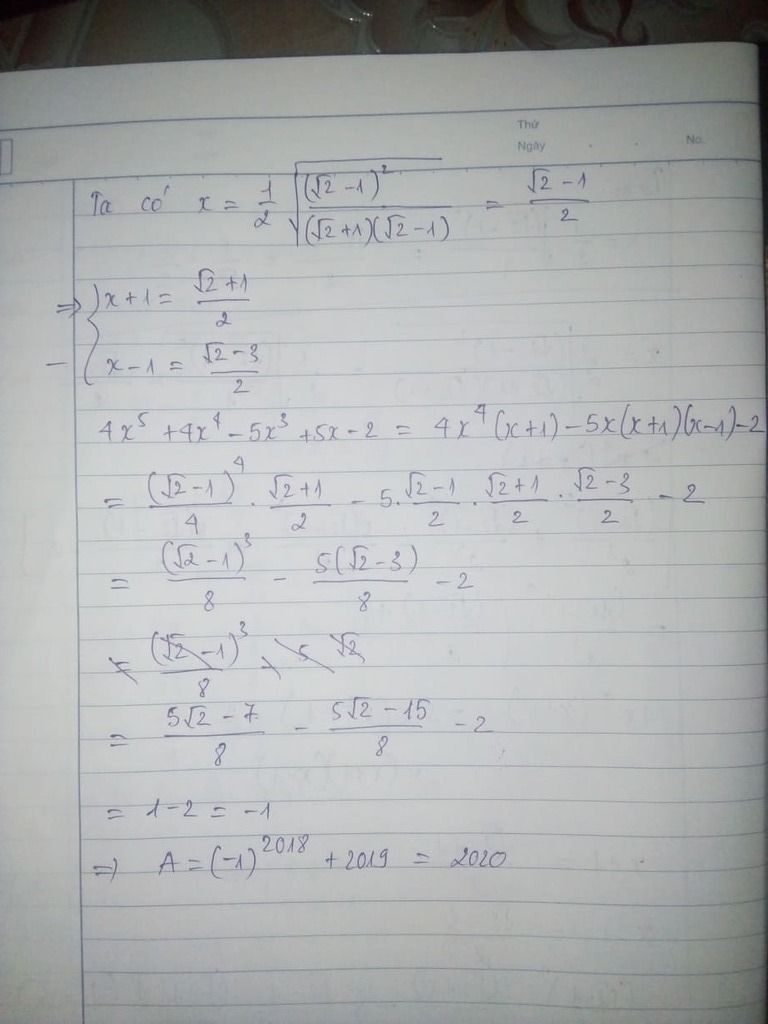 Thứ
Ngày No.
Ta có x = \frac{1}{2} \sqrt{\frac{(√2 -1)^2}{(√2+1)(√2-1)}} = \frac{√2 -1}{2}
⇒ { x+1 = \frac{√2+1}{2}
- x-1 = \frac{√2-3}{2}
4x^5 +4x^4 -5x^3 +5x-2 = 4x^4 (x+1) -5x(x+1)(x-1)-2
= \frac{(√2-1)^4}{4} . \frac{√2+1}{2} - 5. \frac{√2-1}{2} . \frac{√2+1}{2} . \frac{√2-3}{2} -2
= \frac{(√2-1)^3}{8} - \frac{5(√2-3)}{8} -2
= \frac{(√2-1)^3}{8} + 5 √2
= \frac{5√2-7}{8} - \frac{5√2-15}{8} -2
= 1-2 = -1
⇒ A = (-1)^{2018} +2019 = 2020